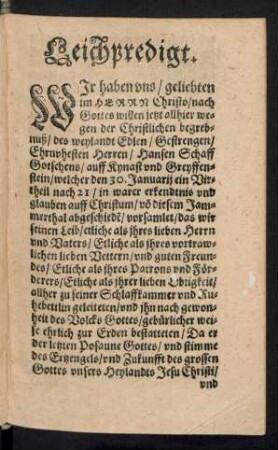 Leichpredigt.
WIr haben vns/geliebten
im HERRN Christo/nach
Gottes willen jetzt allhier we-
gen der Christlichen begreb-
nuß/des weylandt Edlen/Gestrengen/
Ehrnvhesten Herren/Hansen Schaff
Gotschens/auff Kynast vnd Greyffen-
stein/welcher den 30. Januarij ein Vir-
theil nach 21/in warer erkendtnis vnd
glauben auff Christum/vō diesem Jam-
merthal abgeschiedē/vorsamlet/das wir
seinen Leib/etliche als jhres lieben Herrn
vnd Vaters/Etliche als jhres vortraw-
lichen lieben Vettern/vnd guten Freun-
des/Etliche als jhres Patrons vnd För-
derers/Etliche als jhrer lieben Obrigkeit/
allher zu seiner Schlaffkammer vnd Ru-
hebettlin geleiteten/vnd jhn nach gewon-
heit des Volcks Gottes/gebürlicher wei-
se ehrlich zur Erden bestatteten/Da er
der letzten Posaune Gottes/vnd stimme
des Ertzengels/vnd Zukunfft des grossen
Gottes vnsers Heylandts Jesu Christi/
vnd